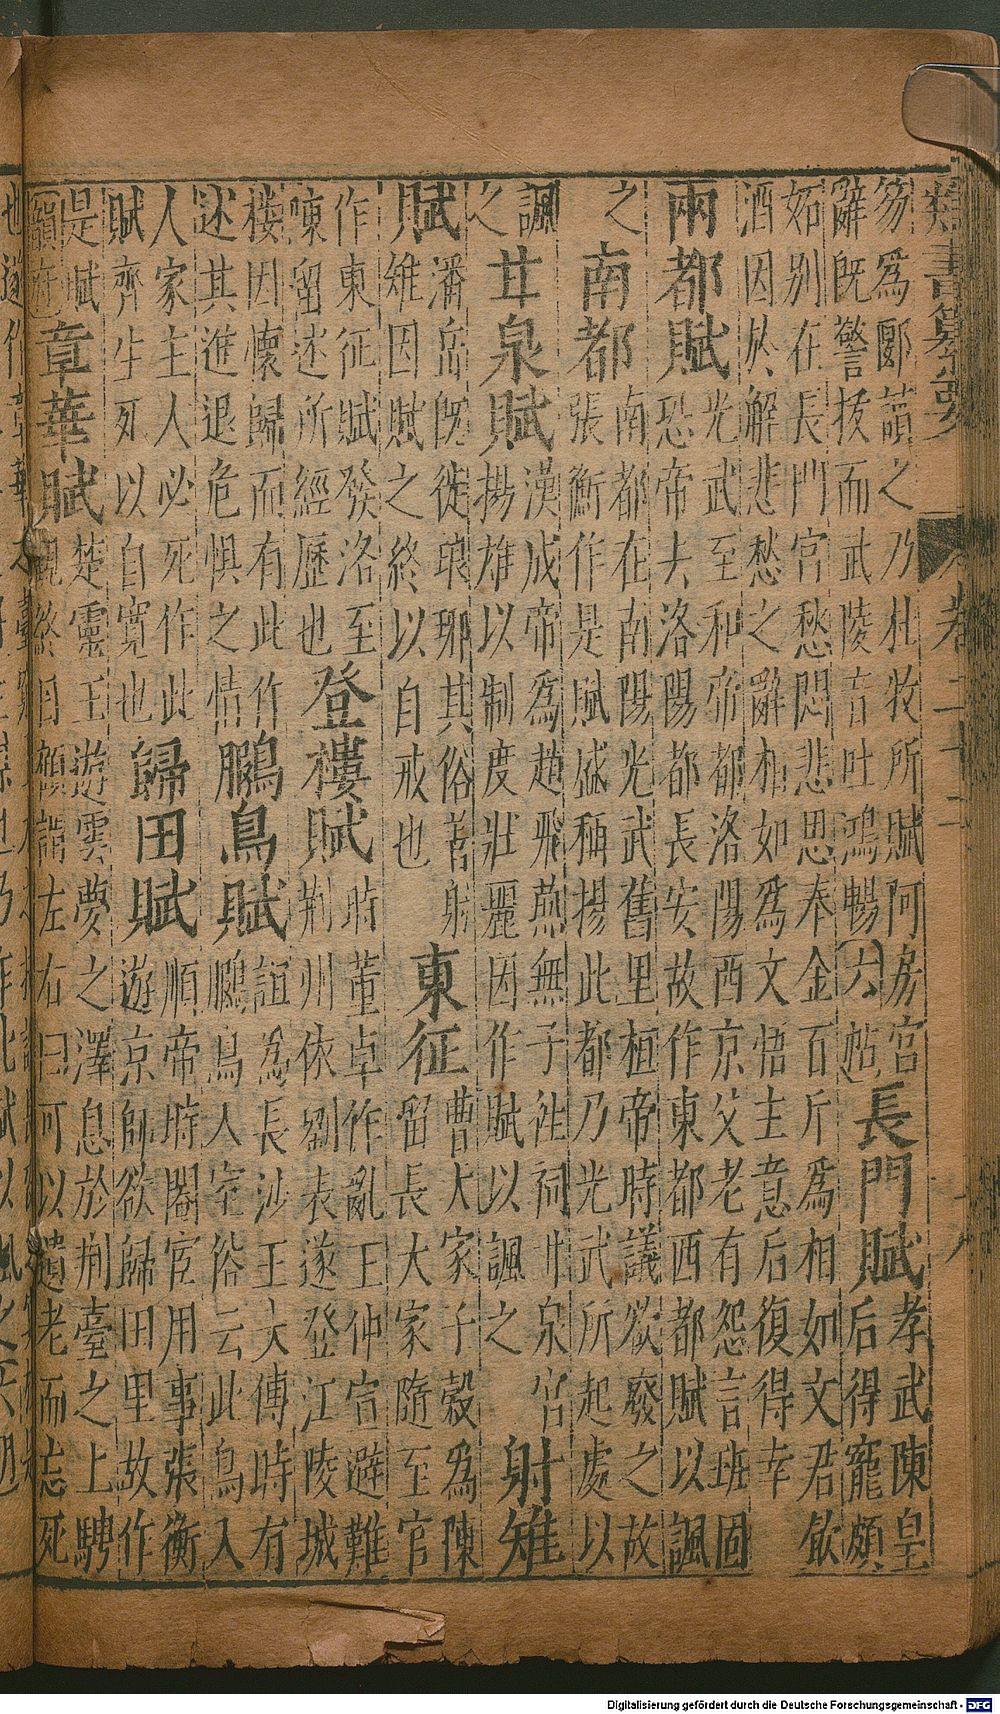 類書纂要 卷二十二 八
芴爲郾讀之乃杜牧所賦阿房宮 長門賦 孝武陳皇
辭既警拔而武陵音吐鴻暢(六帖) 后得寵頗
妬别在長門宮愁悶悲思奉金百斤爲相如文君飲
酒因於解悲愁之辭相如爲文悟主意后復得幸
兩都賦 光武至和帝都洛陽西京父老有怨言班固
恐帝去洛陽都長安故作東都西都賦以諷
之 南都 南都在南陽光武舊里桓帝時議欲廢之故
張衡作是賦盛稱揚此都乃光武所起處以
諷 甘泉賦 漢成帝爲趙飛燕無子祉祠甘泉宮
之 揚雄以制度壯麗因作賦以諷之 射雉
賦 潘岳既徙琅琊其俗善射 東征 曹大家子穀爲陳
雉因賦之終以自戒也 留長大家隨至官
作東征賦發洛至 登樓賦 時董卓作亂王仲宣避難
東留述所經歷也 荆州依劉表遂登江陵城
樓因懷歸而有此作 鵩鳥賦 誼爲長沙王太傅時有
述其進退危惧之情 鵩鳥人室俗云此鳥入
人家主人必死作此 歸田賦 順帝時閹宦用事張衡
賦齊生死以自寬也 遊京師欲歸田里故作
是賦 章華賦 楚靈王遊雲夢之澤息於荆臺之上騁
韻府 觀縱目顧謂左右曰可以遺老而忘死
Digitalisierung gefördert durch die Deutsche Forschungsgemeinschaft - DFG